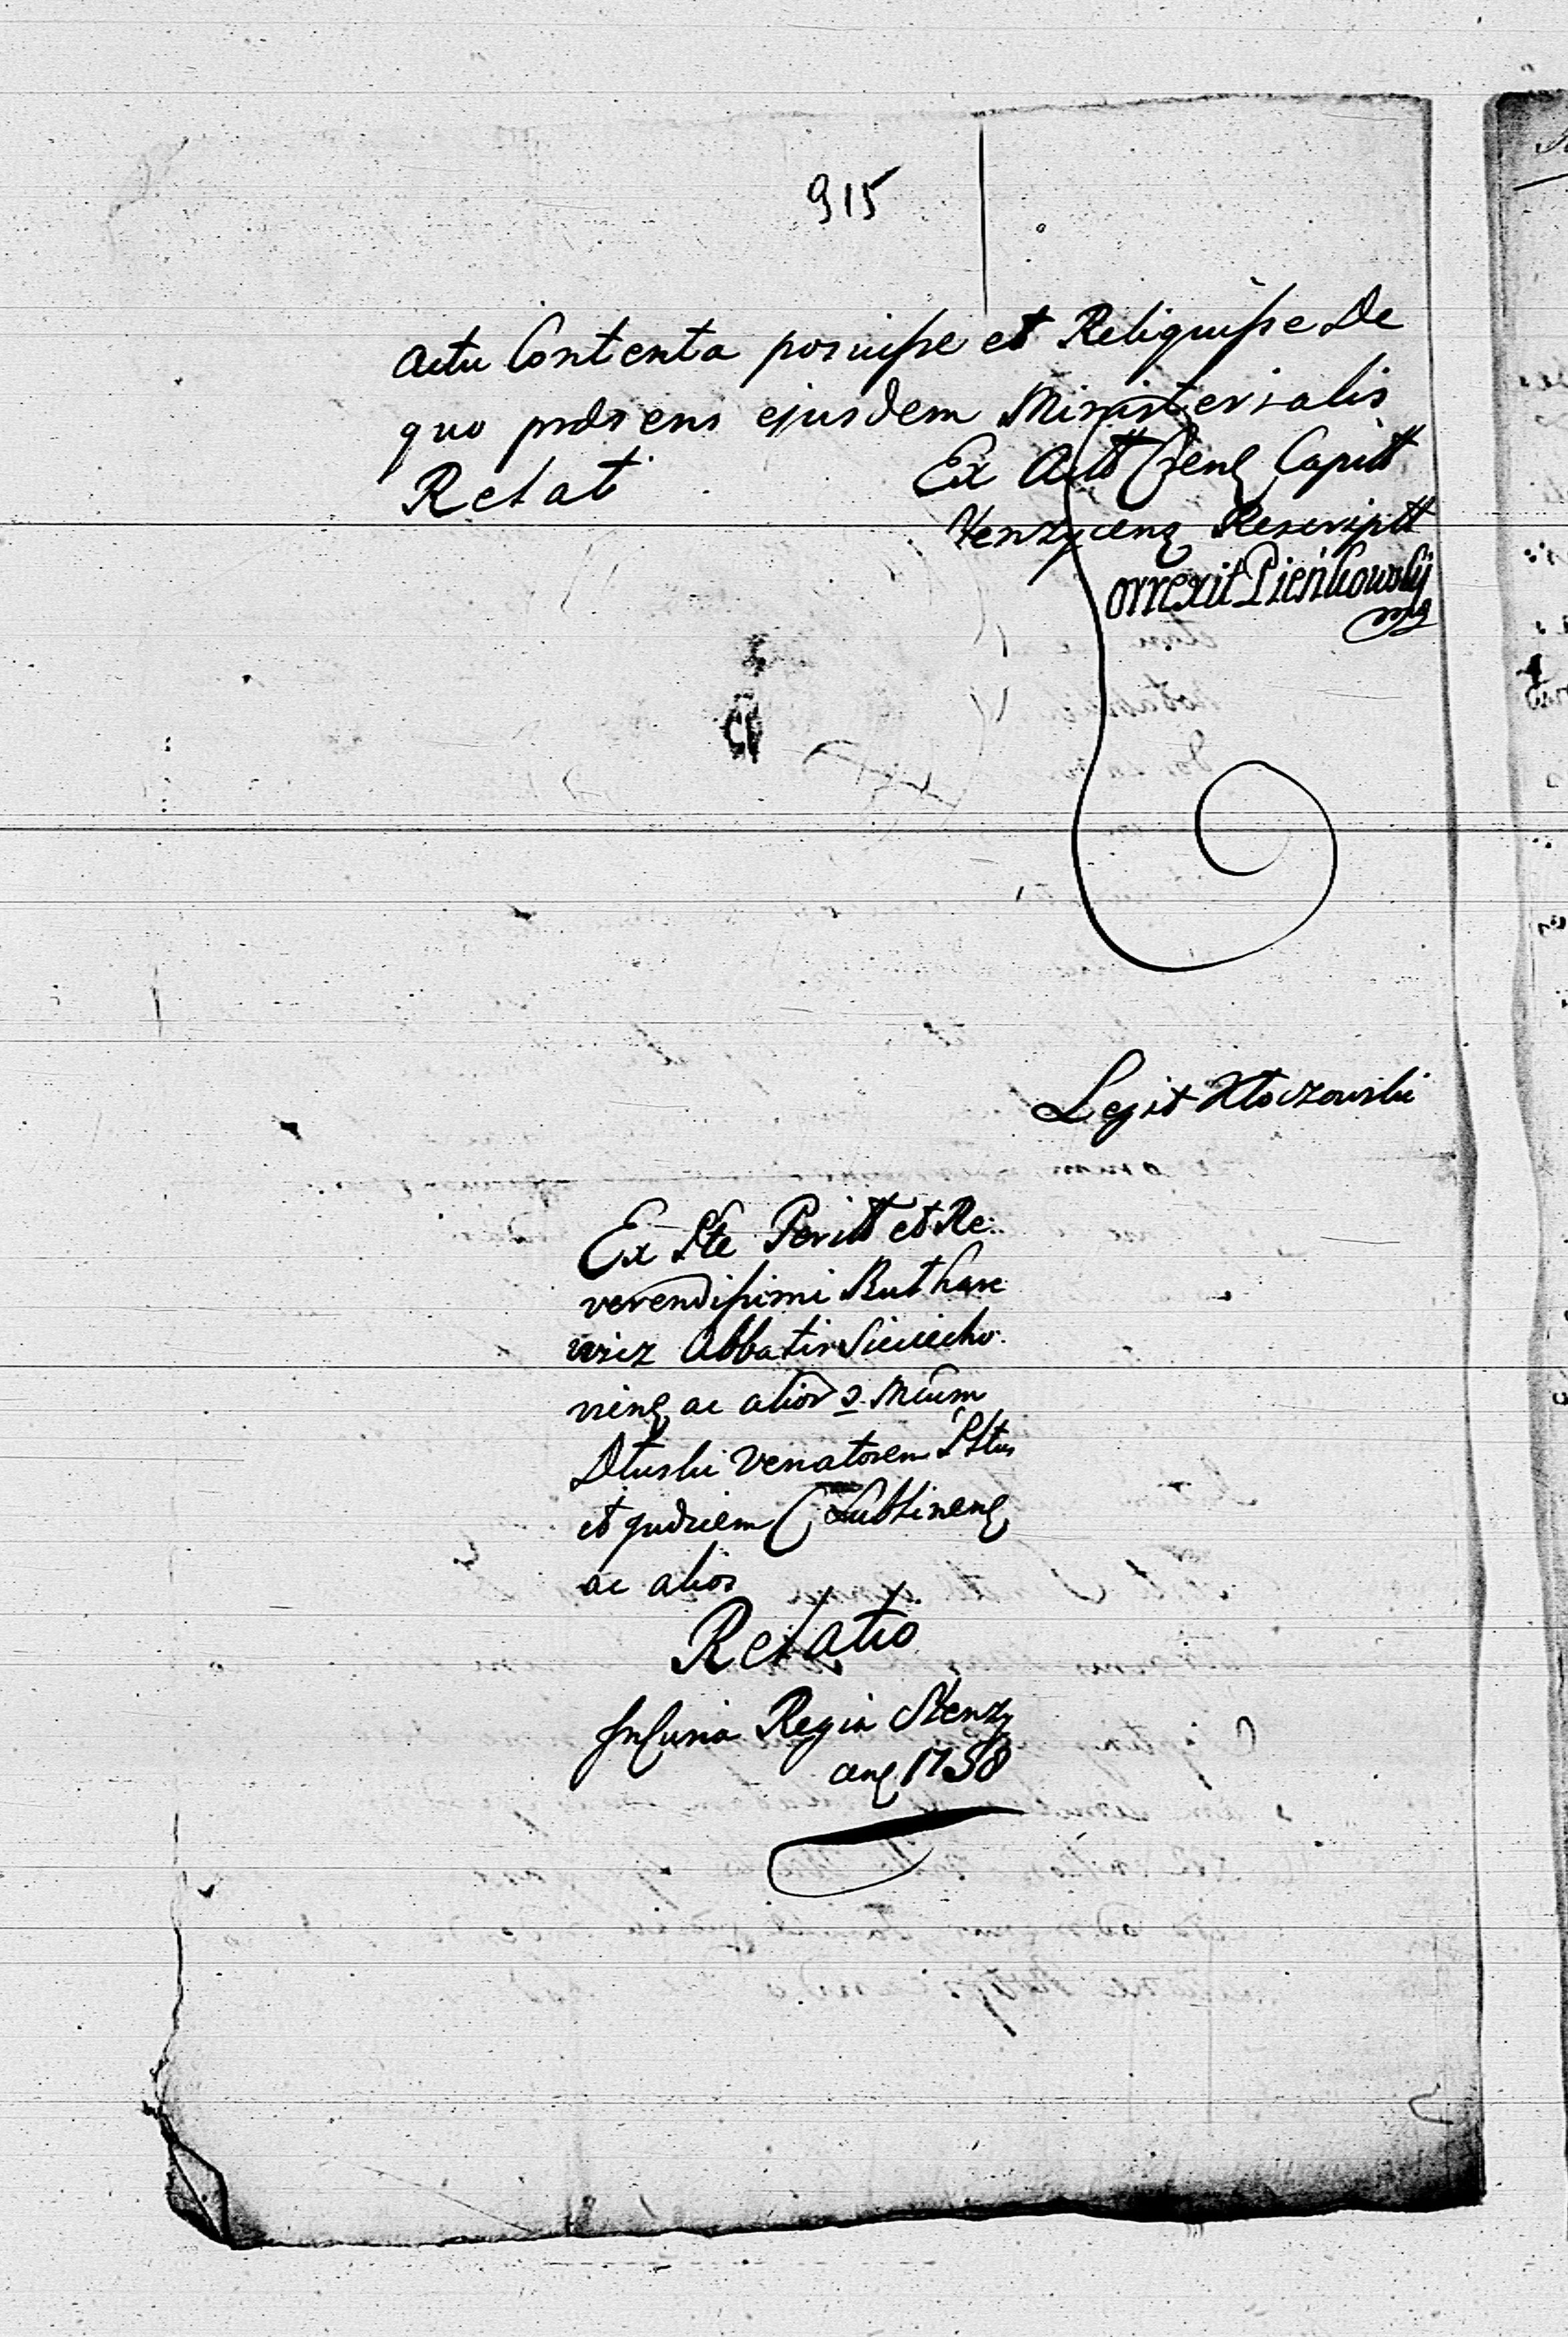 915
Actu Contenta posuisse et Reliquisse De
quo prdsens ejusdem Ministerialis
Relat
Ex Actt Crens Capitt
Stenzycens Rescriptt
Correxit Pieńkowskij
mp
Legit Kłoczowski
Ex Pte Peritt et Re
verendissimi
wicz Abbatis Sieciecho
viens ac alior
Dłuski Venatorem
et Judicem C Lublinens
ac alios
Relatio
In Curia Regia Stenzy
cens 1758